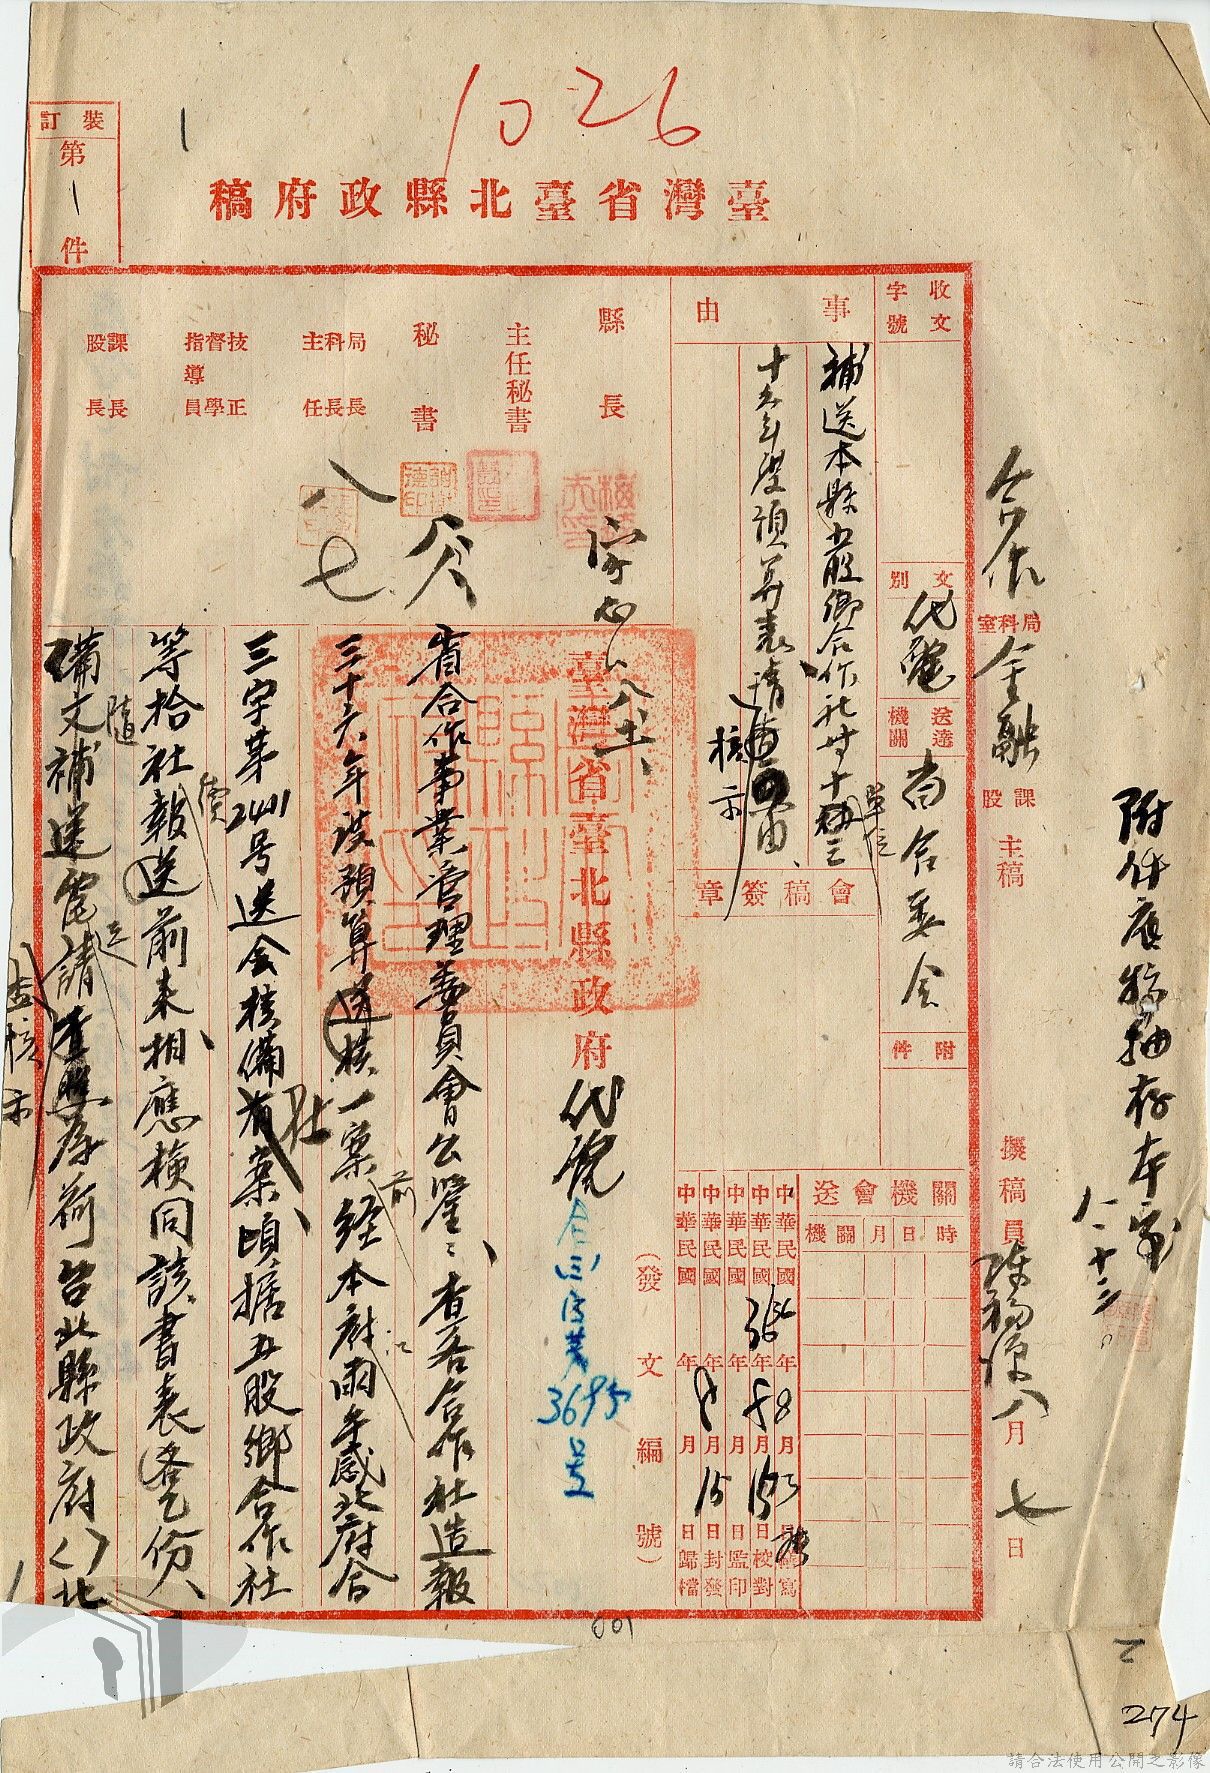 1026
臺灣省臺北縣政府稿
裝訂
第1件
收文字號
文別
代電
送達機關
省合委會
附件
事由
補送本縣五股鄉合作社等十三單位
十六年度預算表請
核示
會稿簽章
縣長
主任秘書
秘書
局長科長主任
技正督學指導員
課長股長
合作
局科室
金融
課股
主稿
擬稿員
八月七日
附件原稿抽存本室
八、十三
關機會送
時日月關機
中華民國36年8月15日繕寫
中華民國年8月15日校對
中華民國年月日監印
中華民國年8月15日封發
中華民國年月日歸檔
(發文編號)
臺灣省臺北縣政府代電
字第3695號
省合作事業管理委員會公鑒:查各合作社造報
三十六年度預算送核一案前經本府兩午感北府合
三字第2401号送会核備有案頃据五股鄉合作社
等拾社報送前來相應檢同該書表各乙份
隨
備文補送電請查照為荷台北縣政府()北
查核示
001
274
請合法使用公開之影像